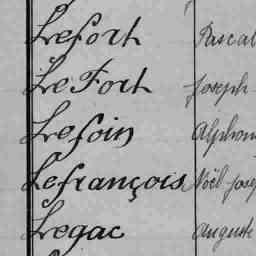 Lefort Pascal
Le Fort Joseph
Lefoin
Lefrançois Noël
Legac Auguste